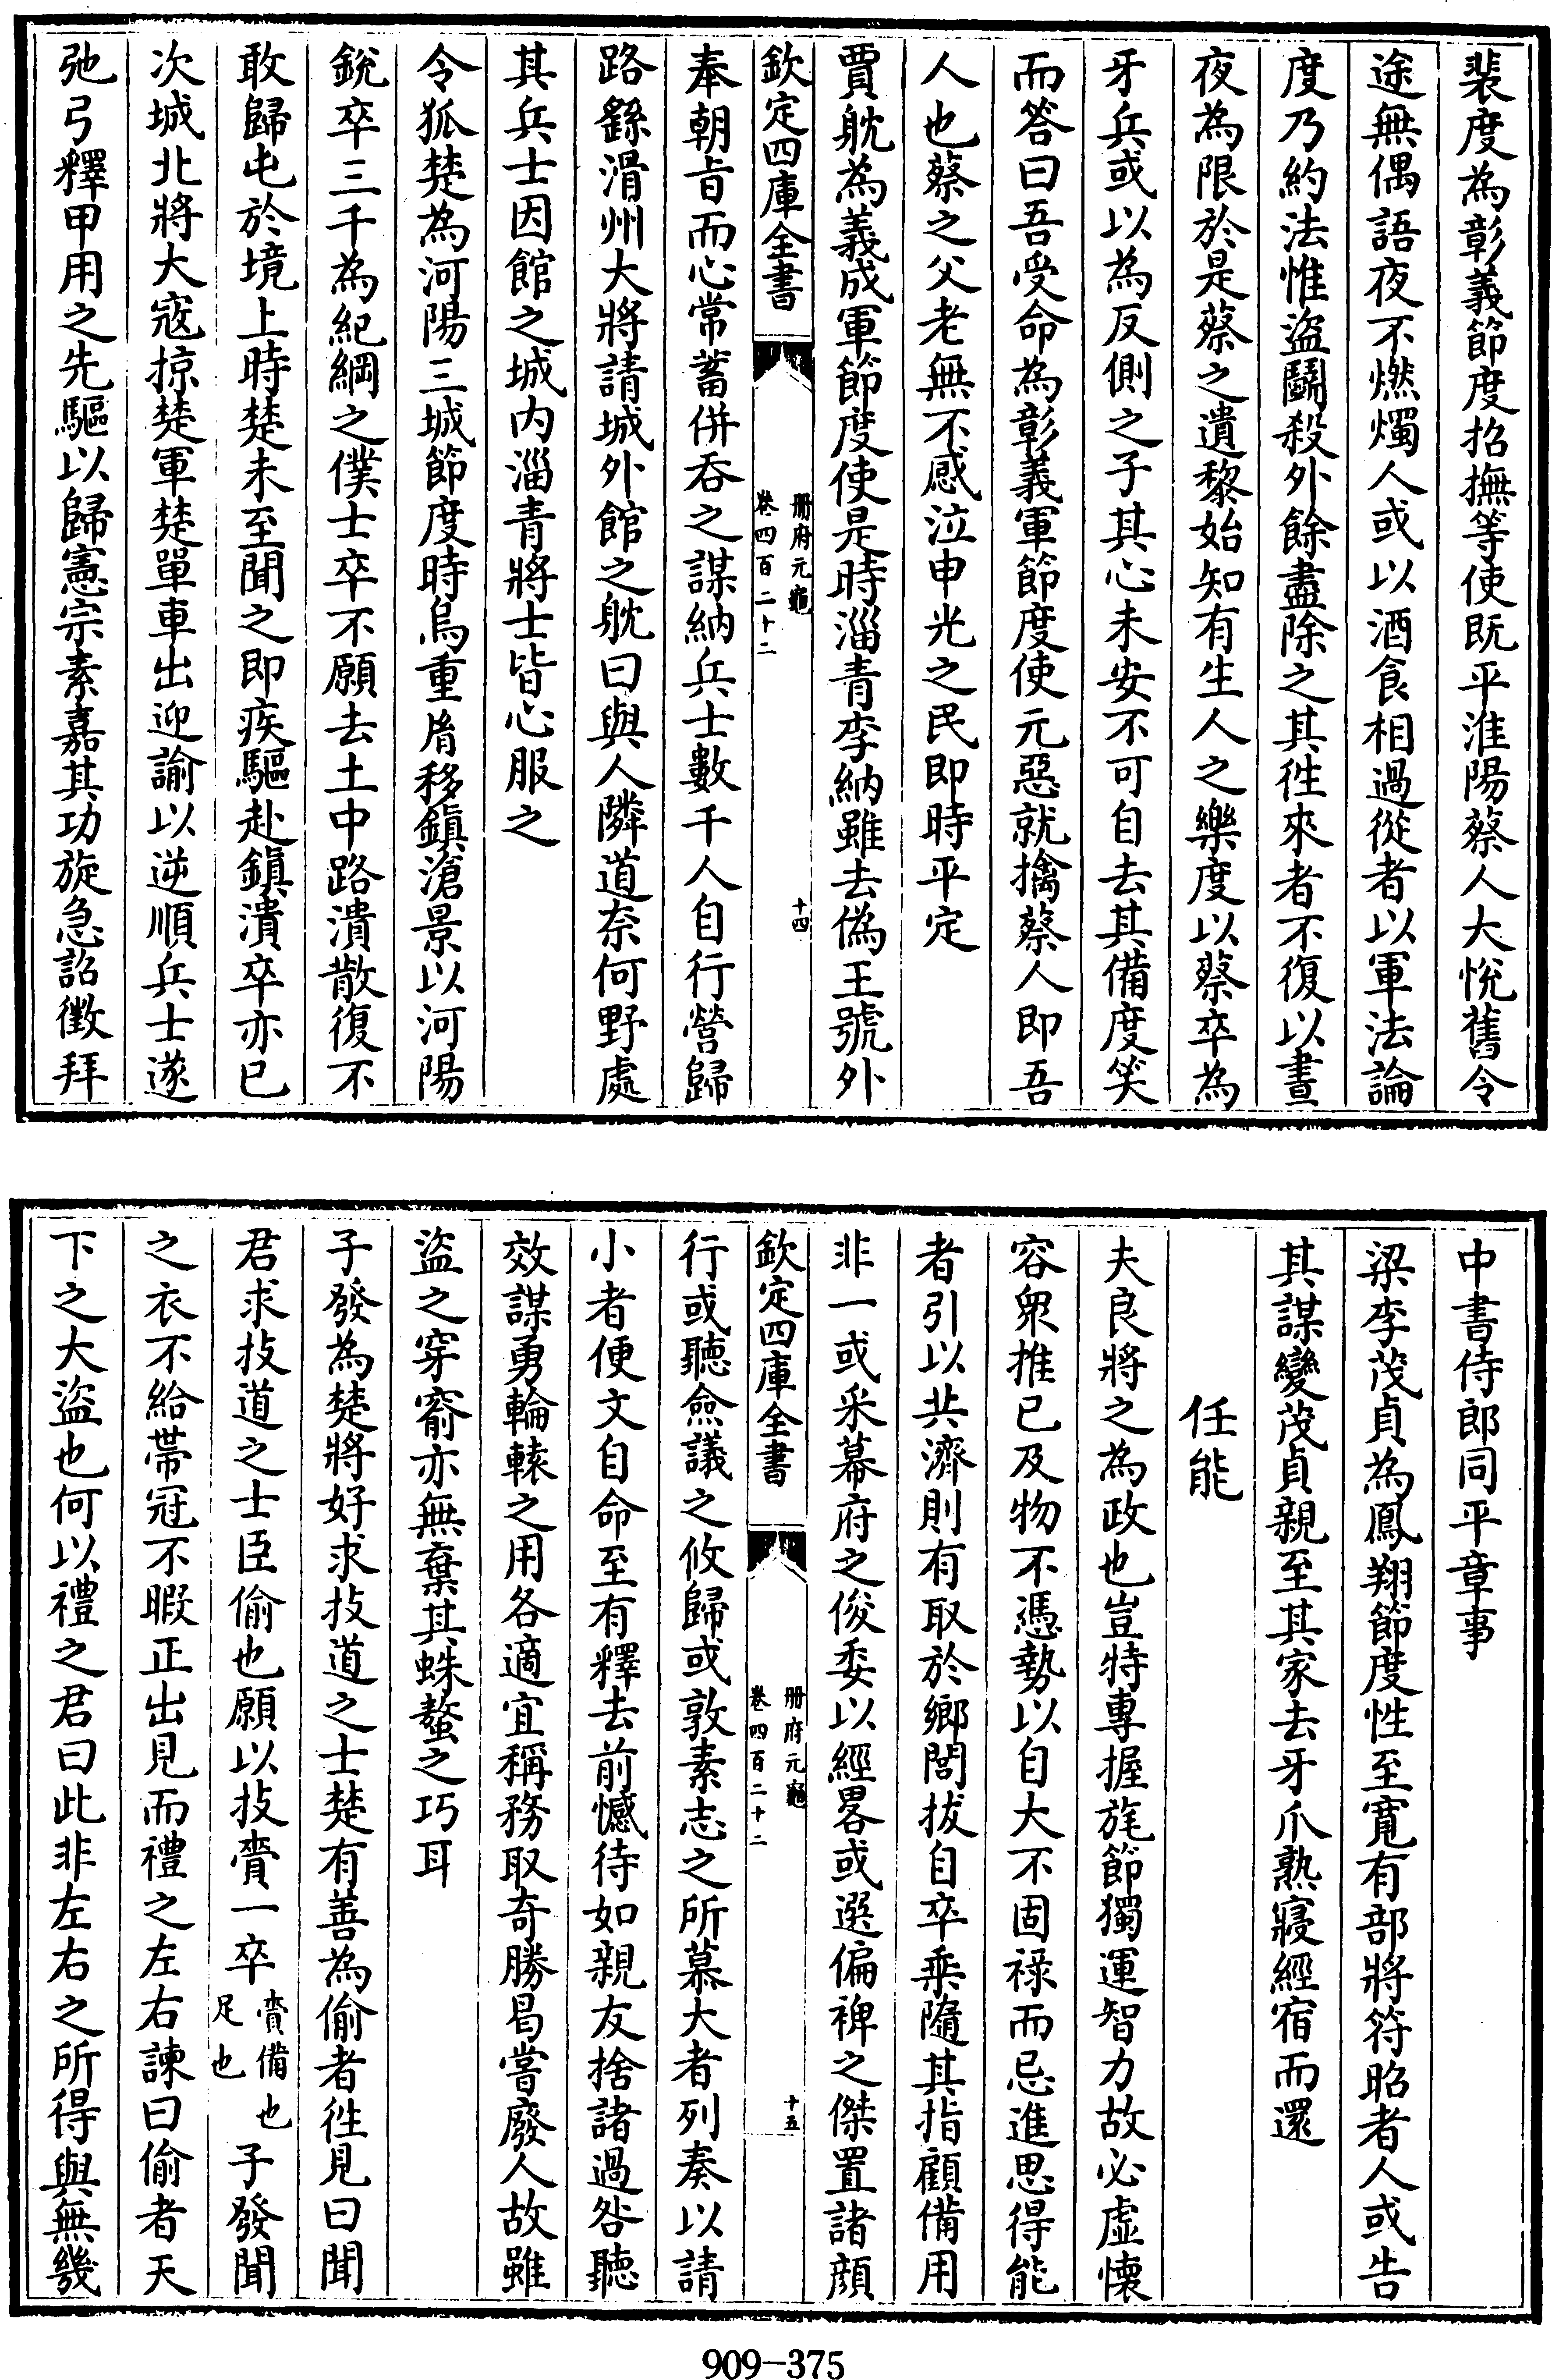 裴度為彰義節度招撫等使既平淮陽蔡人大悅舊令
途無偶語夜不燃燭人或以酒食相過從者以軍法論
度乃約法惟盜鬭殺外餘盡除之其徃來者不復以晝
夜為限於是蔡之遺黎始知有生人之樂度以蔡卒為
牙兵或以為反側之子其心未安不可自去其備度笑
而答曰吾受命為彰義軍節度使元惡就擒蔡人即吾
人也蔡之父老無不感泣申光之民即時平定
賈躭為義成軍節度使是時淄青李納雖去偽王號外
欽定四庫全書
冊府元龜
卷四百二十二
十四
奉朝㫖而心常蓄併吞之謀納兵士數千人自行營歸
路繇滑州大將請城外館之躭曰與人隣道奈何野處
其兵士因館之城内淄青將士皆心服之
令狐楚為河陽三城節度時烏重𦙍移鎮滄景以河陽
銳卒三千為紀綱之僕士卒不願去土中路潰散復不
敢歸屯於境上時楚未至聞之即疾驅赴鎮潰卒亦已
次城北將大寇掠楚軍楚單車出迎諭以逆順兵士遂
弛弓釋甲用之先驅以歸憲宗素嘉其功旋急詔徵拜
中書侍郎同平章事
梁李茂貞為鳳翔節度性至寛有部將符昭者人或告
其謀變茂貞親至其家去牙爪熟寢經宿而還
任能
夫良將之為政也豈特專握旄節獨運智力故必虛懷
容衆推已及物不憑勢以自大不固祿而忌進思得能
者引以共濟則有取於鄉閭拔自卒乘隨其指顧備用
非一或采幕府之俊委以經畧或選偏裨之傑置諸顔
欽定四庫全書
冊府元龜
卷四百二十二
十五
行或聽僉議之攸歸或敦素志之所慕大者列奏以請
小者便文自命至有釋去前憾待如親友捨諸過咎聽
效謀勇輪轅之用各適宜稱務取奇勝曷嘗廢人故雖
盜之穿窬亦無棄其蛛蝥之巧耳
子發為楚將好求技道之士楚有善為偷者徃見曰聞
君求技道之士臣偷也願以技賫一卒賫備也足也子發聞
之衣不給帶冠不暇正出見而禮之左右諫曰偷者天
下之大盜也何以禮之君曰此非左右之所得與無幾
909-375